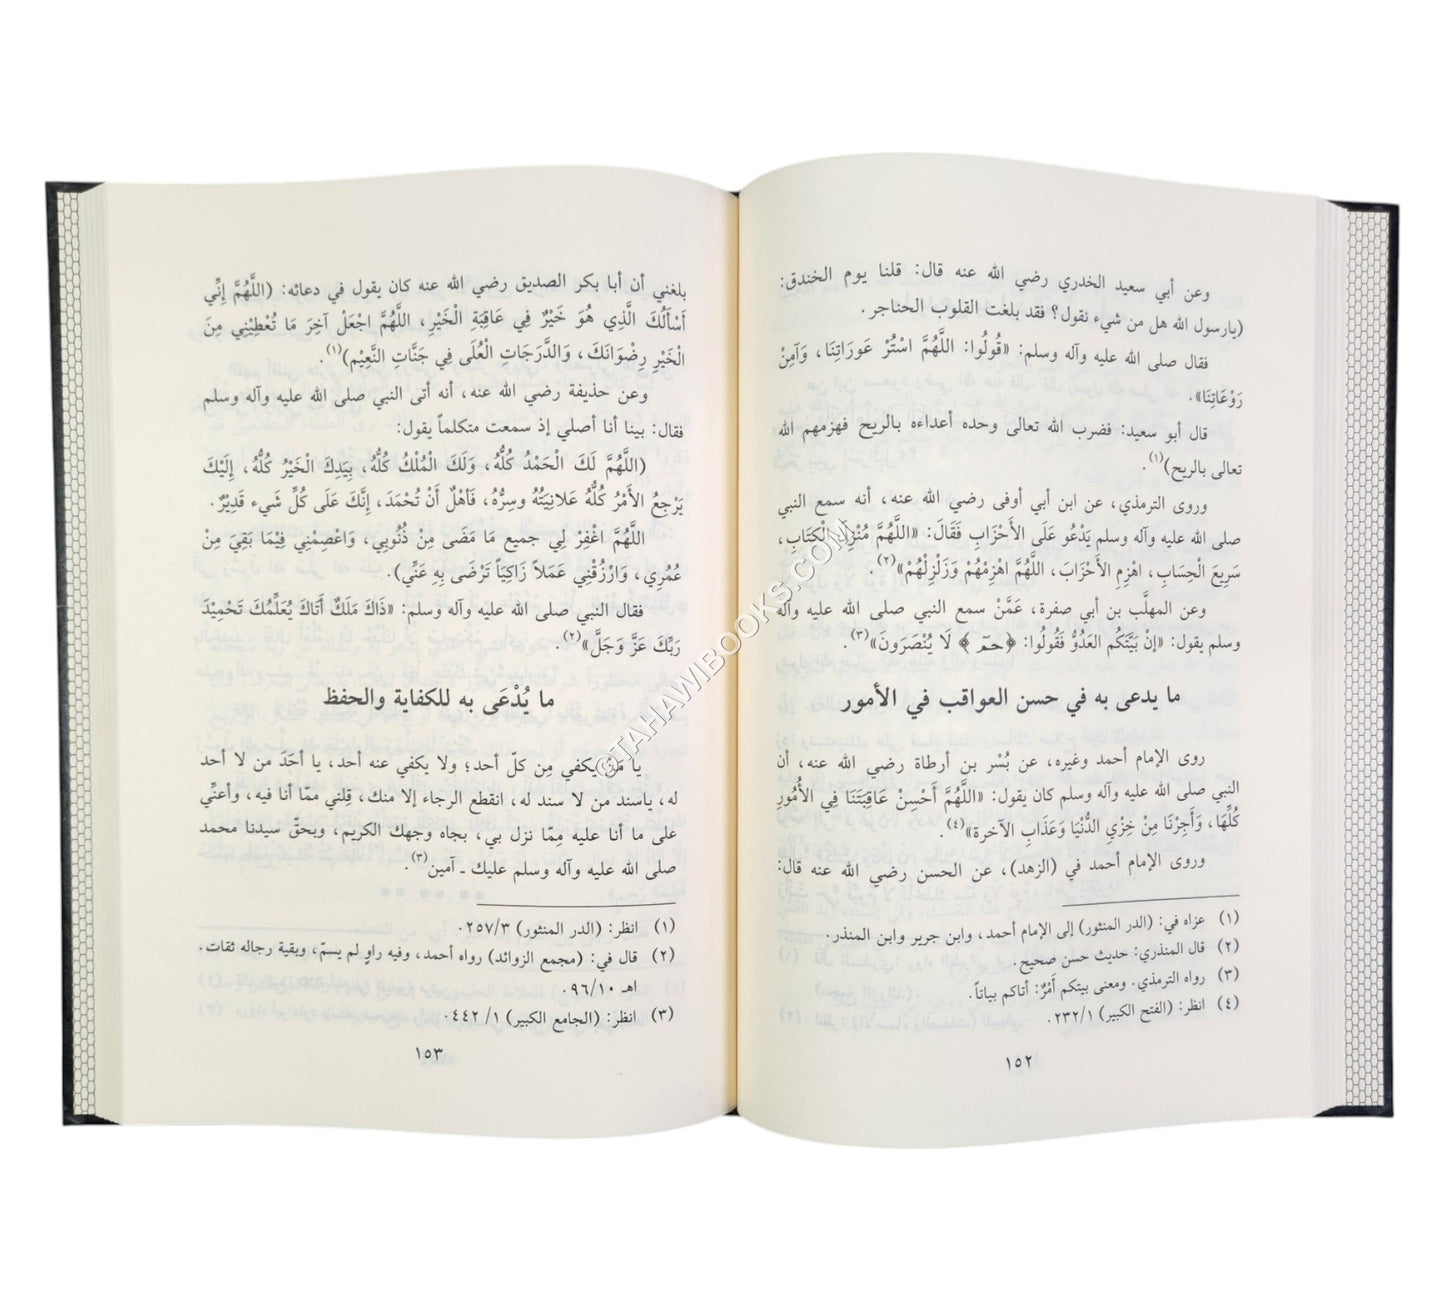 وعن أبي سعيد الخدري رضي الله عنه قال: قلنا يوم الخندق:
(يارسول الله هل من شيء نقول؟ فقد بلغت القلوب الحناجر.
فقال صلى الله عليه وآله وسلم: «قُولُوا: اللَّهُمَّ اسْتُرْ عَورَاتِنَا، وَآمِنْ
رَوْعَاتِنَا».
قال أبو سعيد: فضرب الله تعالى وحده أعداءه بالريح فهزمهم الله
تعالى بالريح)(١).
وروى الترمذي، عن ابن أبي أوفى رضي الله عنه، أنه سمع النبي
صلى الله عليه وآله وسلم يَدْعُو عَلَى الأَحْزَابِ فَقَالَ: «اللَّهُمَّ مُنْزِلَ الْكتَابِ،
سَرِيعَ الْحِسَابِ، اهْزِمِ الأَحْزَابَ، اللَّهُمَّ اهْزِمْهُمْ وَزَلْزِلْهُمْ»(٢).
وعن المهلَّب بن أبي صفرة، عَمَّنْ سمع النبي صلى الله عليه وآله
وسلم يقول: «إنْ بَيَّتَكُم العَدُوُّ فَقُولُوا: ﴿حمٓ﴾ لَا يُنْصَرَونَ»(٣).
ما يدعى به في حسن العواقب في الأمور
روى الإمام أحمد وغيره، عن بُسْر بن أرطاة رضي الله عنه، أن
النبي صلى الله عليه وآله وسلم كان يقول: «اللَّهُمَّ أَحْسِنْ عَاقِبَتَنَا فِي الأُمُورِ
كُلِّهَا، وَأَجِرْنَا مِنْ خِزْيِ الدُّنْيَا وَعَذَابِ الآخرة»(٤).
وروى الإمام أحمد في (الزهد)، عن الحسن رضي الله عنه قال:
(١) عزاه في: (الدر المنثور) إلى الإمام أحمد، وابن جرير وابن المنذر.
(٢) قال المنذري: حديث حسن صحيح.
(٣) رواه الترمذي. ومعنى بيتكم أَمْرٌ: أتاكم بياتاً.
(٤) انظر: (الفتح الكبير) ٢٣٢/١.
١٥٢
بلغني أن أبا بكر الصديق رضي الله عنه كان يقول في دعائه: (اللَّهُمَّ إنِّي
أَسْأَلُكَ الَّذِي هُوَ خَيْرٌ فِي عَاقِبَةِ الْخَيْرِ، اللَّهُمَّ اجْعَلْ آخِرَ مَا تُعْطِيْنِي مِنَ
الْخَيْرِ رِضْوَانَكَ، وَالدَّرَجَاتِ الْعُلَى فِي جَنَّاتِ النَّعِيْم)(١).
وعن حذيفة رضي الله عنه، أنه أتى النبي صلى الله عليه وآله وسلم
فقال: بينا أنا أصلي إذ سمعت متكلماً يقول:
(اللَّهُمَّ لَكَ الْحَمْدُ كُلُّهُ، وَلَكَ الْمُلْكُ كُلُّهُ، بِيَدِكَ الْخَيْرُ كُلُّهُ، إلَيْكَ
يَرْجِعُ الأَمْرُ كُلُّهُ عَلانِيَتُهُ وسِرُّهُ، فَأَهْلٌ أَنْ تُحْمَدَ، إنَّكَ عَلَى كُلِّ شَيء قَدِيْرٌ.
اللَّهُمَّ اغْفِرْ لِي جميع مَا مَضَى مِنْ ذُنُوبِي، وَاعْصِمْنِي فِيْمَا بَقِيَ مِنْ
عُمُرِي، وَارْزُقْنِي عَمَلاً زَاكِيَاً تَرْضَى بِهِ عَنِّي).
فقال النبي صلى الله عليه وآله وسلم: «ذَاكَ مَلَكٌ أَتَاكَ يُعَلِّمُكَ تَحْمِيْدَ
رَبِّكَ عَزَّ وَجَلَّ»(٢).
ما يُدْعَى به للكفاية والحفظ
يا مَنْ يكفي مِن كلّ أحد؛ ولا يكفي عنه أحد، يا أحَدَ من لا أحد
له، ياسند من لا سند له، انقطع الرجاء إلا منك، قِلني ممّا أنا فيه، وأعنِّي
على ما أنا عليه مِمّا نزل بي، بجاه وجهك الكريم، وبحقّ سيدنا محمد
صلى الله عليه وآله وسلم عليك ـ آمين(٣).
(١) انظر: (الدر المنثور) ٢٥٧/٣.
(٢) قال في: (مجمع الزوائد) رواه أحمد، وفيه راوٍ لم يسمّ، وبقية رجاله ثقات.
اهـ ٩٦/١٠.
(٣) انظر: (الجامع الكبير) ١/ ٤٤٢.
١٥٣
©TAHAWIBOOKS.COM